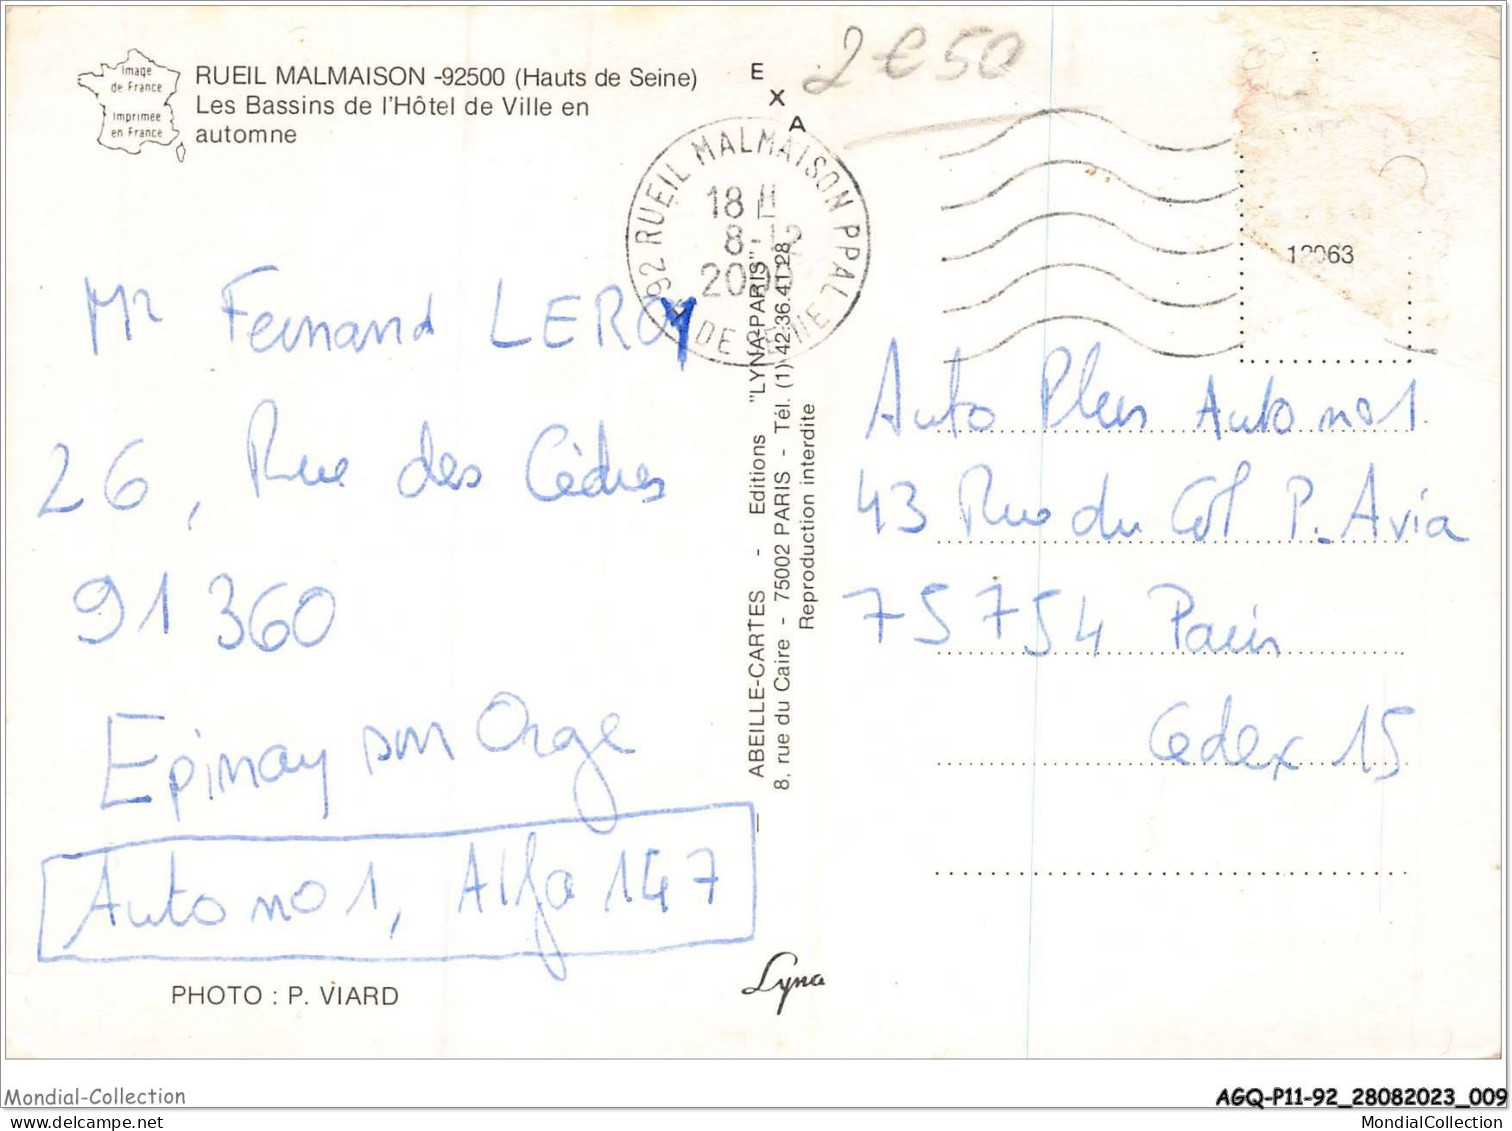 Image
de France
Imprimée
en France
RUEIL MALMAISON -92500 (Hauts de Seine)
Les Bassins de l'Hôtel de Ville en
automne
EXA
2€50
92 RUEIL MALMAISON PPAL
18H
8-12
2000
DE SEINE
Mr Fernand LEROY
26, Rue des Cèdres
91 360
Epinay sur Orge
Auto no 1, Alfa 147
PHOTO : P. VIARD
ABEILLE-CARTES - Editions "LYNA-PARIS"
8, rue du Caire - 75002 PARIS - Tél. (1) 42.36.41.28
Reproduction interdite
Lyna
Auto Plus Auto no 1
43 Rue du Col P. Avia
75754 Paris
Cedex 15
Mondial-Collection
AGQ-P11-92_28082023_009
www.delcampe.net
MondialCollection